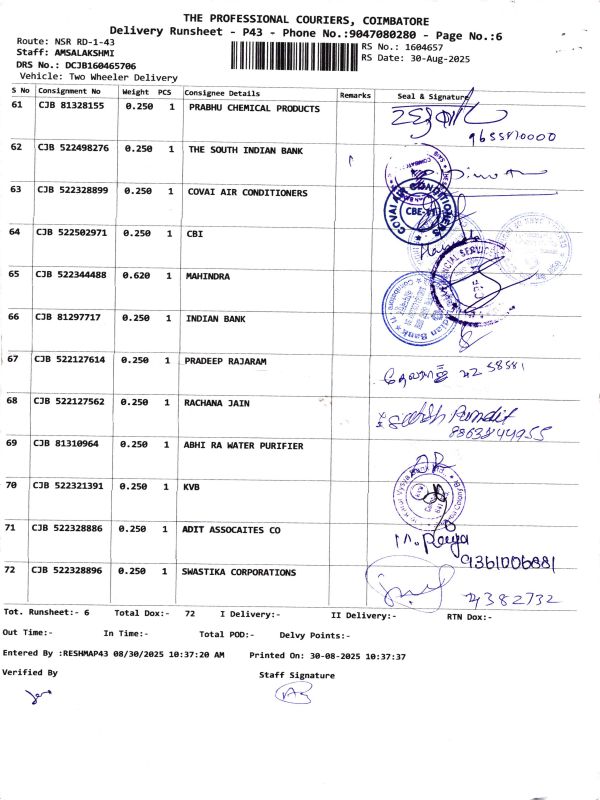 THE PROFESSIONAL COURIERS, COIMBATORE
Delivery Runsheet - P43 - Phone No.:9047080280 - Page No.:6
Route: NSR RD-1-43
RS No.: 1604657
Staff: AMSALAKSHMI
RS Date: 30-Aug-2025
DRS No.: DCJB160465706
Vehicle: Two Wheeler Delivery
S No Consignment No Weight PCS Consignee Details Remarks Seal & Signature
61 CJB 81328155 0.250 1 PRABHU CHEMICAL PRODUCTS
62 CJB 522498276 0.250 1 THE SOUTH INDIAN BANK
63 CJB 522328899 0.250 1 COVAI AIR CONDITIONERS
COVAI AIR CONDITIONERS
CBE-11
64 CJB 522502971 0.250 1 CBI
65 CJB 522344488 0.620 1 MAHINDRA
66 CJB 81297717 0.250 1 INDIAN BANK
67 CJB 522127614 0.250 1 PRADEEP RAJARAM
68 CJB 522127562 0.250 1 RACHANA JAIN
69 CJB 81310964 0.250 1 ABHI RA WATER PURIFIER
70 CJB 522321391 0.250 1 KVB
71 CJB 522328886 0.250 1 ADIT ASSOCAITES CO
9361006881
72 CJB 522328896 0.250 1 SWASTIKA CORPORATIONS
Tot. Runsheet:- 6 Total Dox:- 72 I Delivery:- II Delivery:- RTN Dox:-
Out Time:- In Time:- Total POD:- Delvy Points:-
Entered By :RESHMAP43 08/30/2025 10:37:20 AM Printed On: 30-08-2025 10:37:37
Verified By Staff Signature